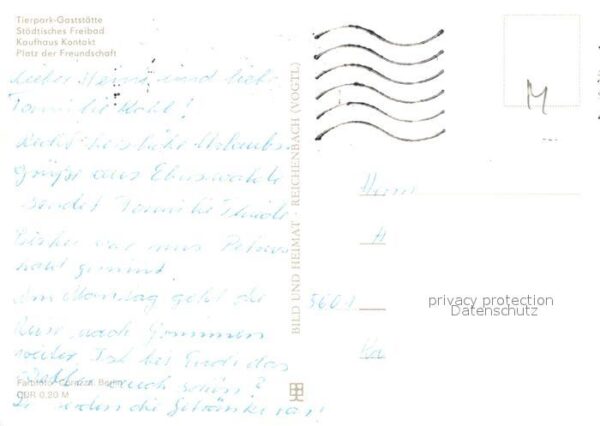 Tierpark-Gaststätte
Städtisches Freibad
Kaufhaus Kontakt
Platz der Freundschaft
Lieber Heinz und liebe
Familie Kohl!
Recht herzliche Urlaubs-
grüße aus Eberswalde
sendet Familie
Bisher war uns Petrus
gesinnt.
Am Montag geht die
Reise nach Pommern
weiter. Ist bei Euch das
Wetter auch schön?
die Getränke
Farbfoto: Berlin
0,20 M
BILD UND HEIMAT · REICHENBACH (VOGTL)
M
Herrn
H
5601
privacy protection
Datenschutz